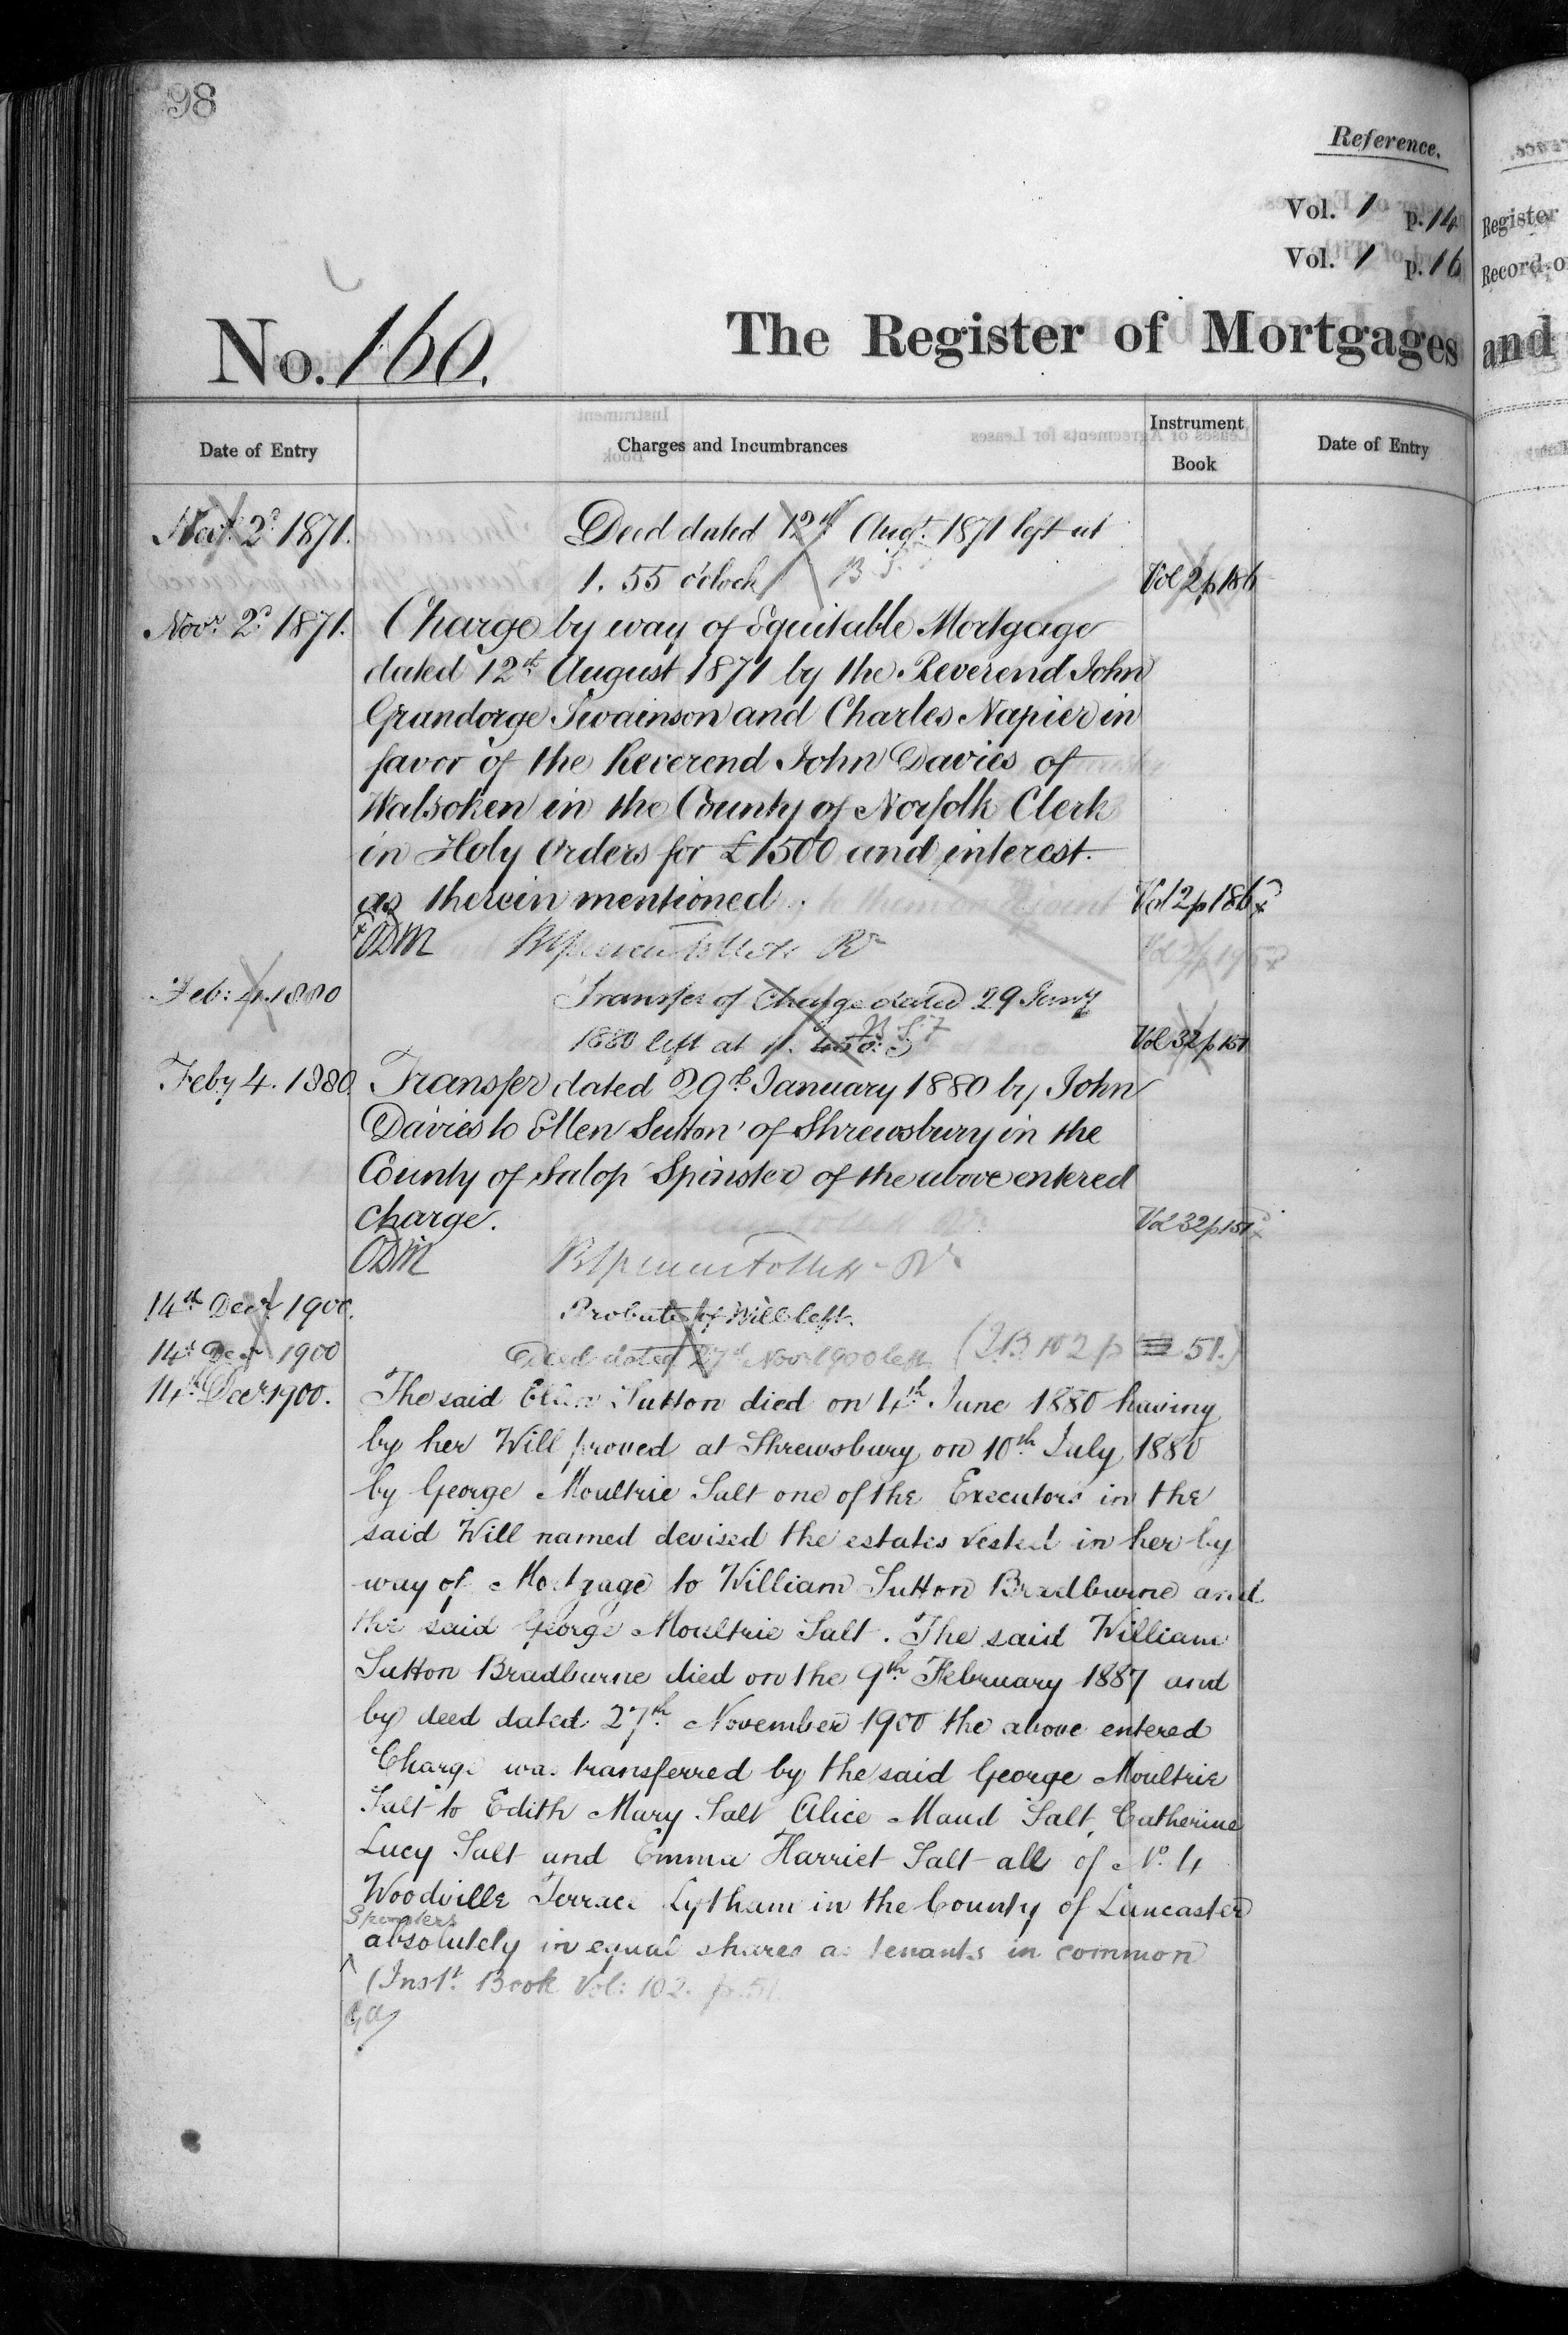 98
Reference.
Vol. 1 p. 14
Register
Vol. 1 p. 16
Record o
No. 160.
The Register of Mortgages and
Date of Entry
Charges and Incumbrances
Instrument Book
Date of Entry
Nov. 2d 1871. Deed dated 12th Augt. 1871 left at
1. 55 o'clock Vol 2 p 186
Novr. 2d 1871. Charge by way of Equitable Mortgage
dated 12th August 1871 by the Reverend John
Grandorge Swainson and Charles Napier in
favor of the Reverend John Davies of
Walsoken in the County of Norfolk Clerk
in Holy Orders for £1500 and interest
as therein mentioned. Vol 2 p 186
ODM
Feb: 4. 1880 Transfer of Charge dated 29 Jany
1880 left at Vol 32 p 151
Feby 4. 1880. Transfer dated 29th January 1880 by John
Davies to Ellen Sutton of Shrewsbury in the
County of Salop Spinster of the above entered
charge. Vol 32 p 151
ODM
14th Decr. 1900. Probate of Will left.
14th Decr 1900 Deed dated 27th Novr 1900 left (I.B. 102 p 51.)
14th Decr. 1900. The said Ellen Sutton died on 4th June 1880 having
by her Will proved at Shrewsbury on 10th July 1880
by George Moultrie Salt one of the Executors in the
said Will named devised the estates vested in her by
way of Mortgage to William Sutton Bradburne and
the said George Moultrie Salt. The said William
Sutton Bradburne died on the 9th February 1887 and
by deed dated 27th November 1900 the above entered
Charge was transferred by the said George Moultrie
Salt to Edith Mary Salt Alice Maud Salt, Catherine
Lucy Salt and Emma Harriet Salt all of No. 4
Woodville Terrace Lytham in the County of Lancaster
Spinsters
absolutely in equal shares as tenants in common
(Inst. Book Vol: 102. p. 51.